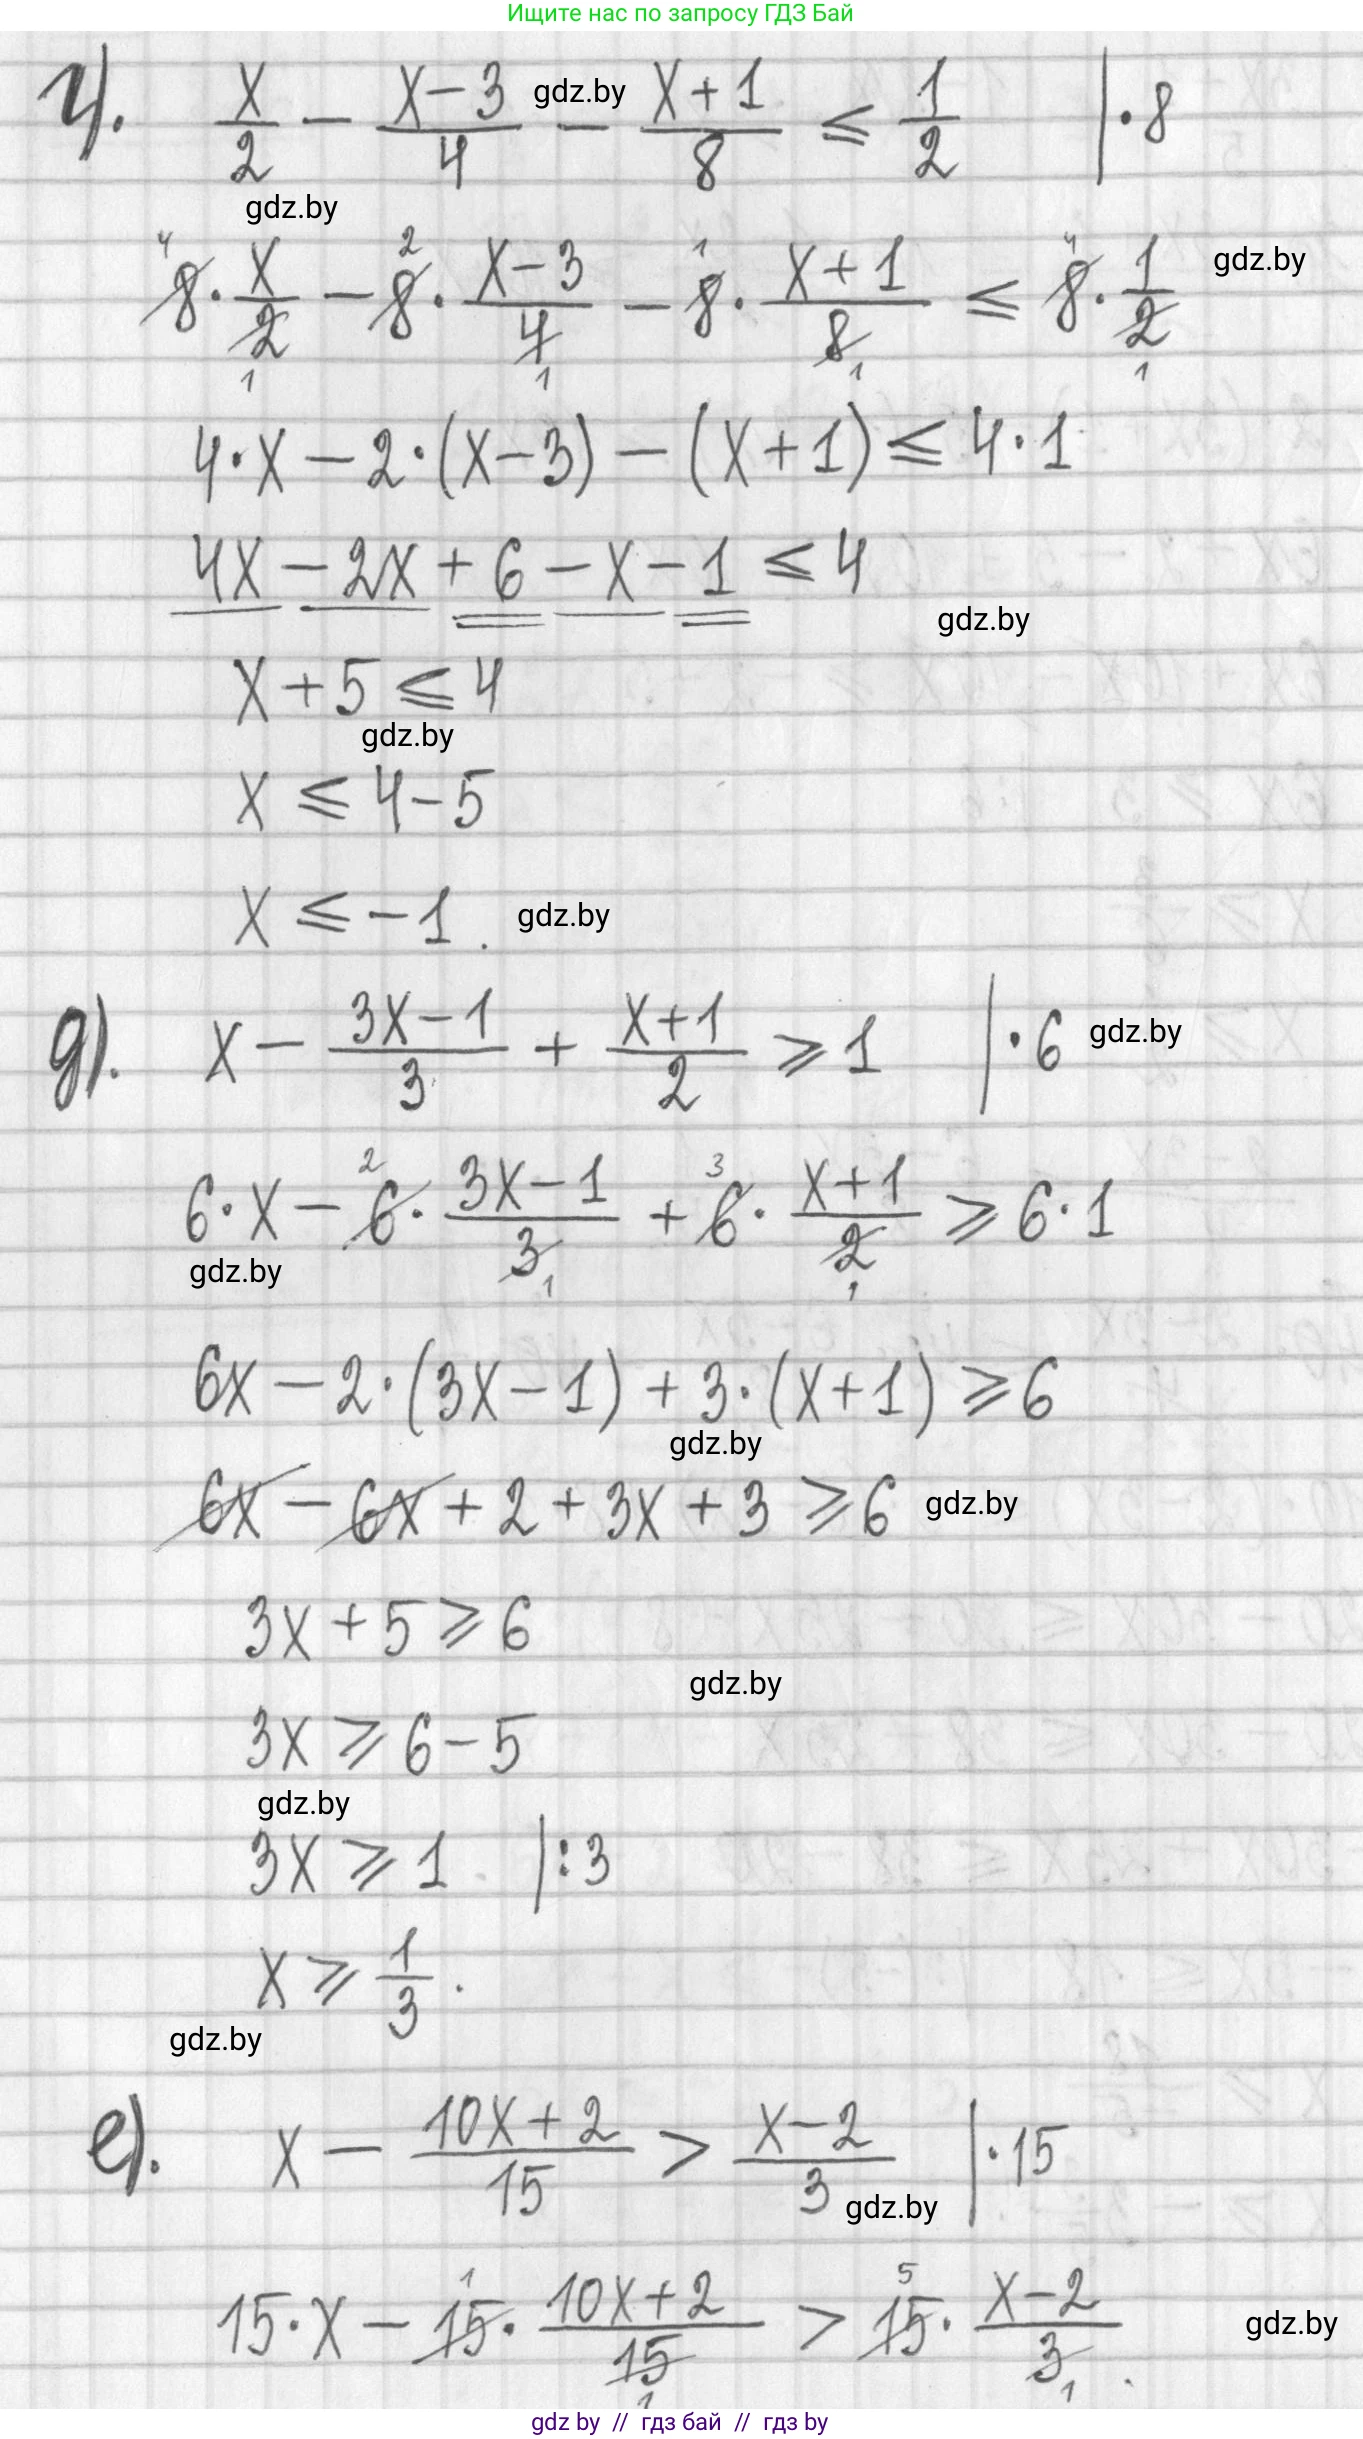 Ищите нас по запросу ГДЗ Бай
г). x/2 - (x-3)/4 gdz.by - (x+1)/8 ≤ 1/2 | · 8
gdz.by
8 · x/2 - 8 · (x-3)/4 - 8 · (x+1)/8 ≤ 8 · 1/2 gdz.by
4 · x - 2 · (x-3) - (x+1) ≤ 4 · 1
4x - 2x + 6 - x - 1 ≤ 4
gdz.by
x + 5 ≤ 4
gdz.by
x ≤ 4 - 5
x ≤ -1. gdz.by
д). x - (3x-1)/3 + (x+1)/2 ⩾ 1 | · 6 gdz.by
6 · x - 6 · (3x-1)/3 + 6 · (x+1)/2 ⩾ 6 · 1
gdz.by
6x - 2 · (3x-1) + 3 · (x+1) ⩾ 6
gdz.by
6x - 6x + 2 + 3x + 3 ⩾ 6 gdz.by
3x + 5 ⩾ 6
gdz.by
3x ⩾ 6 - 5
gdz.by
3x ⩾ 1 | : 3
x ⩾ 1/3.
gdz.by
е). x - (10x+2)/15 > (x-2)/3 | · 15
gdz.by
15 · x - 15 · (10x+2)/15 > 15 · (x-2)/3. gdz.by
gdz by // гдз бай // гдз by